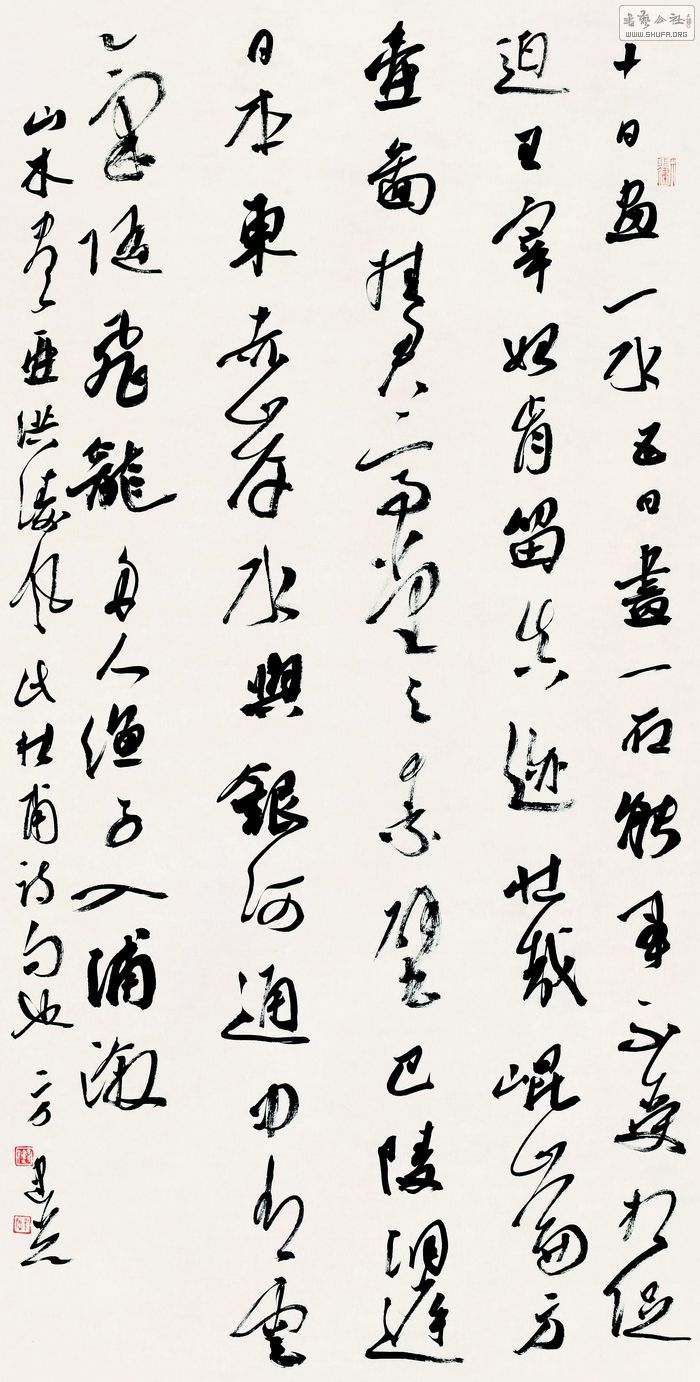 書藝公社
WWW.SHUFA.ORG
十日画一水五日畫一石能事不受相促
迫王宰始肯留真迹壮哉崐崘方
壺圖挂君高堂之素壁巴陵洞庭
日本東赤岸水與銀河通中有雲
氣隨飛龍舟人漁子入浦溆
山木盡亞洪濤風此杜甫詩句也方建光